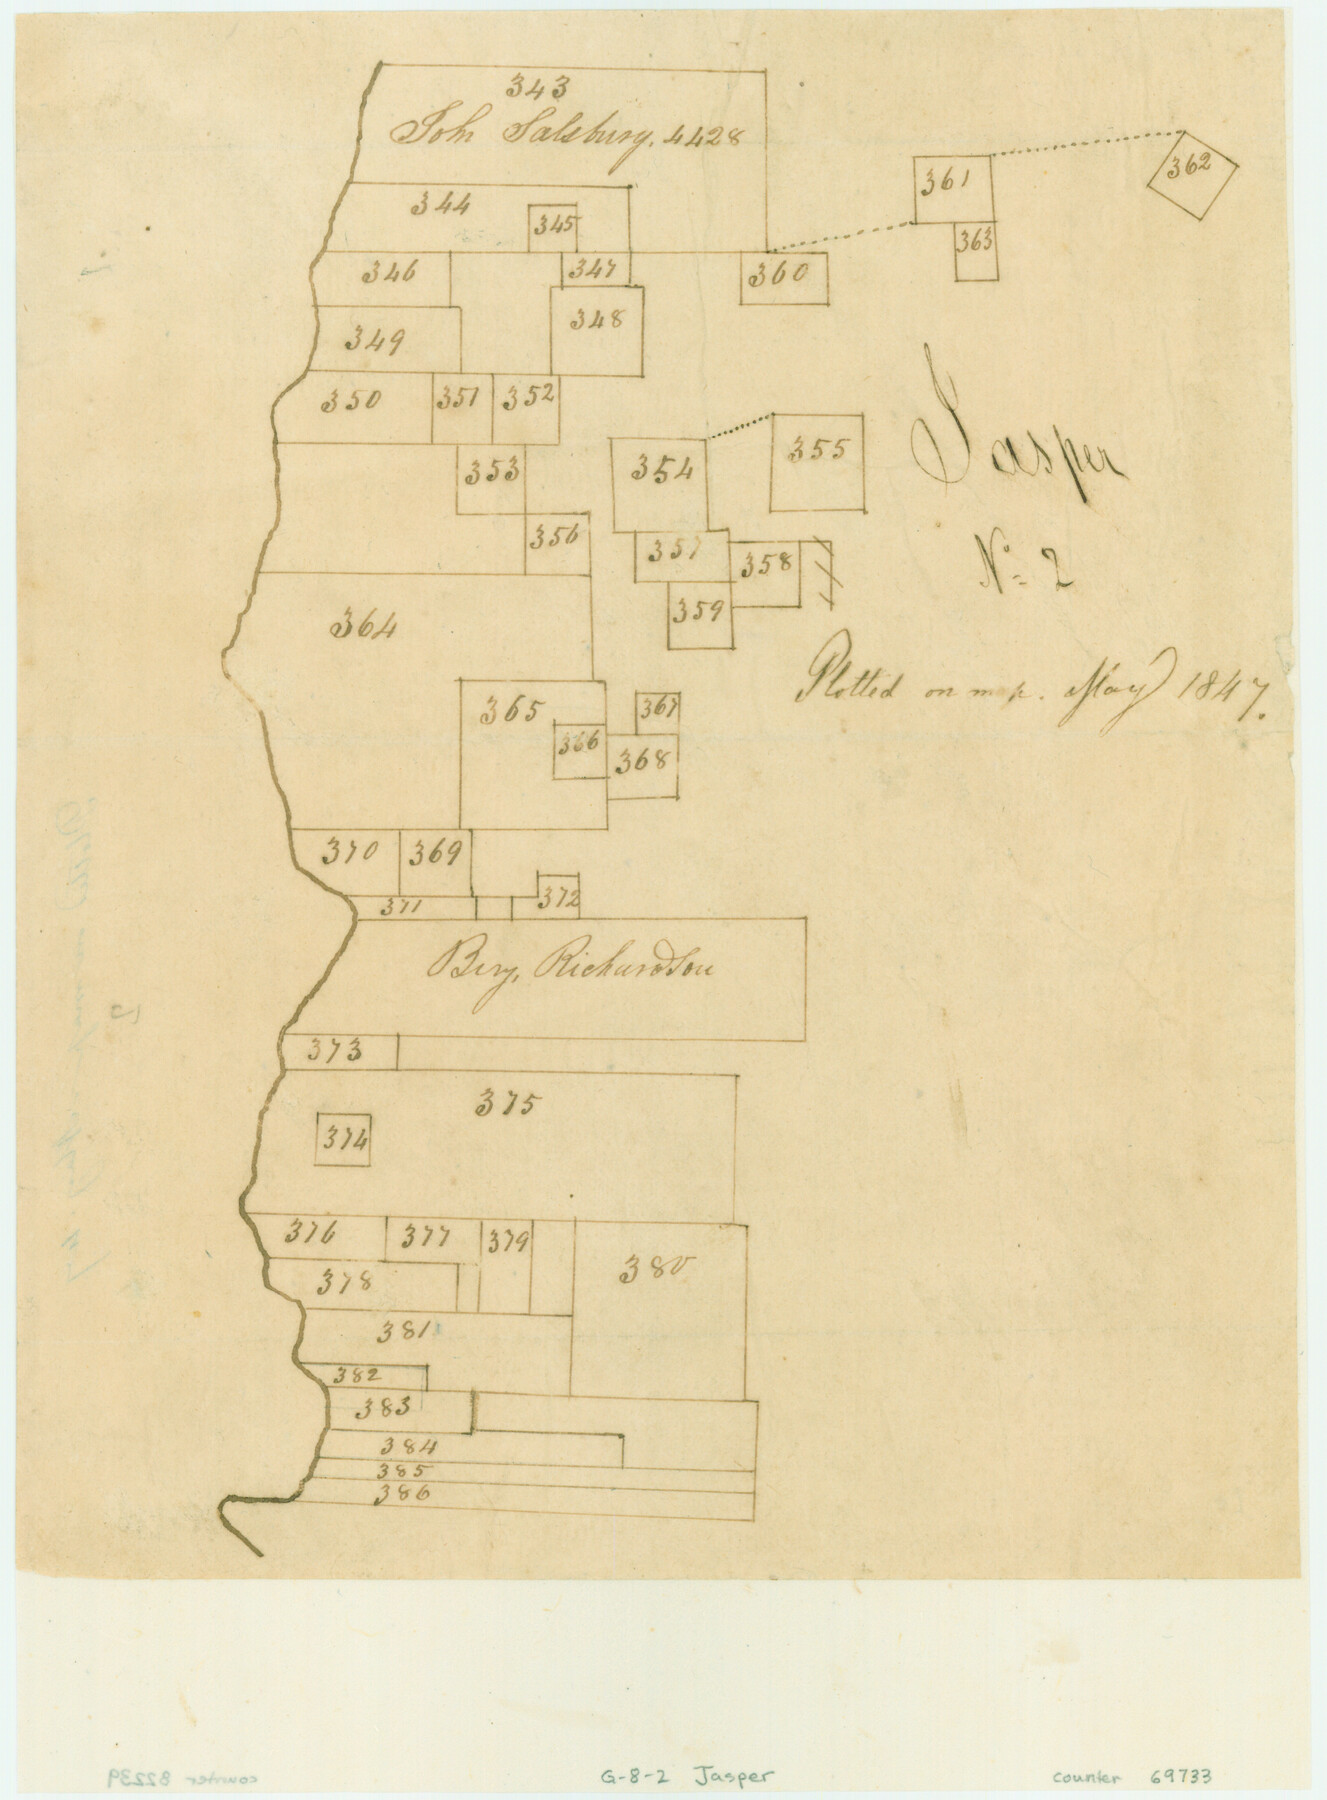 343
Joh Salsbury. 4428
361
362
344
345
363
346
347
360
348
349
350
351
352
Jasper
353
354
355
356
357
358
No. 2
359
364
Plotted on map. May 1847.
365
366
367
368
370
369
371
372
Beny, Richardson
373
375
374
376
377
379
380
378
381
382
383
384
385
386
counter 82239
G-8-2 Jasper
counter 69733